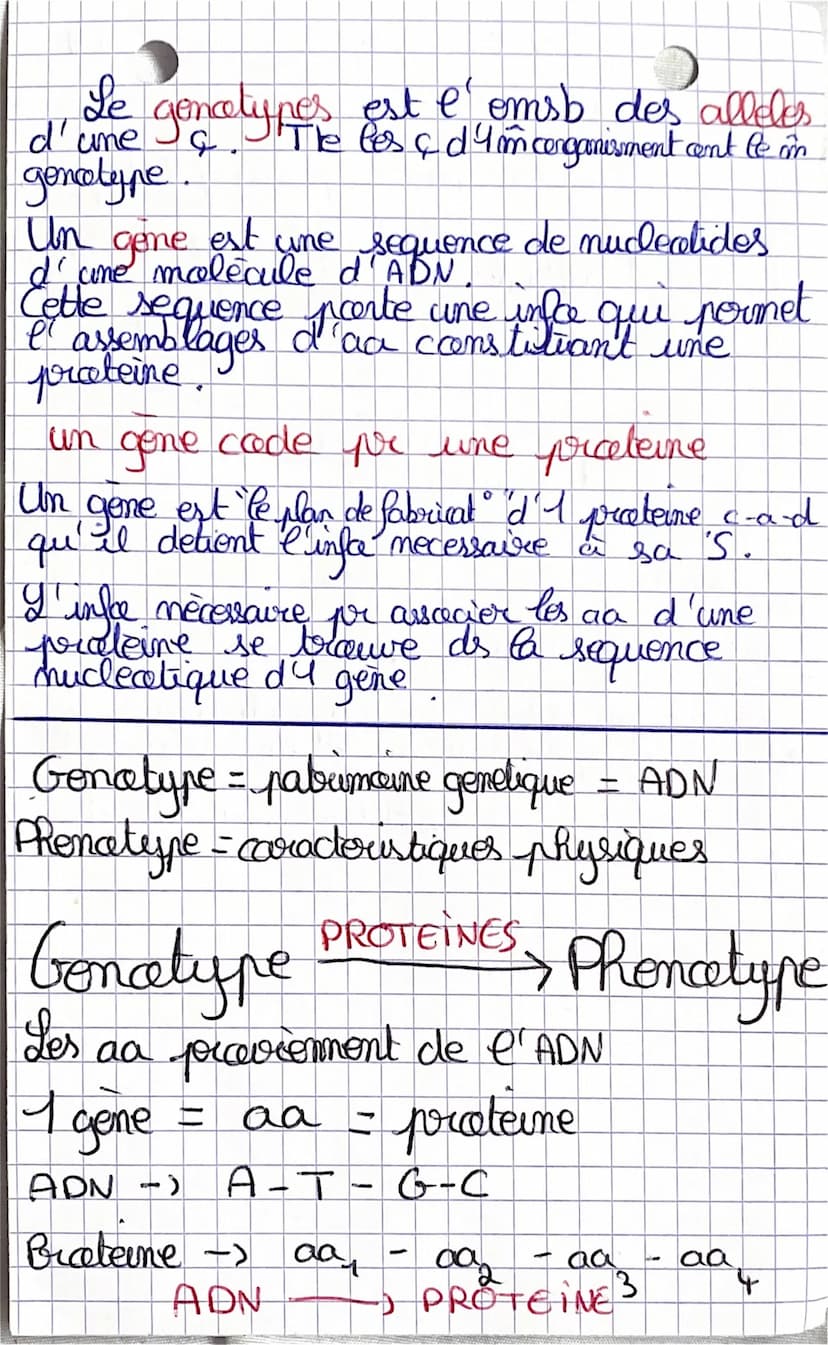 Le genotypes est l'emsb des alleles
d'une ç. Tte les ç d'1 m̂ organisment ont le m̂
genotype.
Un gène est une sequence de nucleotides
d'une molécule d'ADN.
Cette sequence porte une info qui permet
l'assemblages d'aa constituant une
proteine.
un gène code pr une proteine
Un gène est "le plan de fabricat° "d'1 proteine c-a-d
qu'il detient l'info necessaire à sa S.
L'info nécessaire pr associer les aa d'une
proteine se trouve ds la sequence
nucleotique d'1 gène.
Genotype = patrimoine genetique = ADN
Phenotype = caracteristiques physiques
Genotype PROTEÏNES → Phenotype
Les aa proviennent de l'ADN
1 gène = aa = proteine
ADN -> A-T-G-C
Proteine -> aa1 - aa2 - aa3 - aa4
ADN → PROTEINE